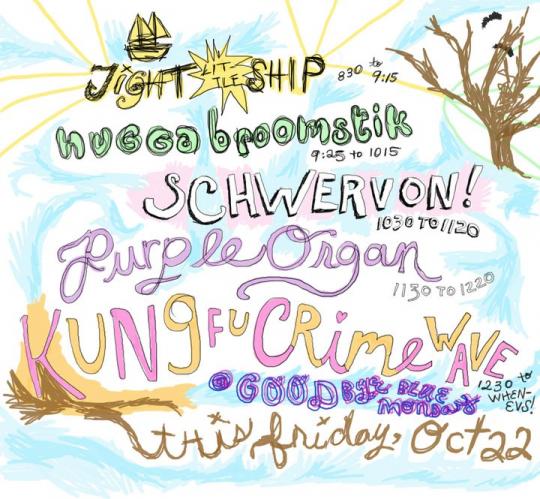 TIGHT LITTLE SHIP 830 to 9:15
hugga broomstik
9:25 to 1015
SCHWERVON!
1030 TO 1120
Purple Organ
1130 TO 1220
KUNg FU CRime WAVE
@ GOOD Bye BLUE monday
1230 to WHEN-EVS!
this friday, Oct 22